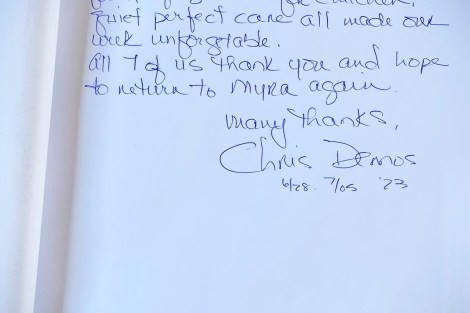 quiet perfect care all made our
week unforgetable.
all 7 of us thank you and hope
to return to Myra again.
many thanks,
Chris Demos
6/28. 7/05 '23